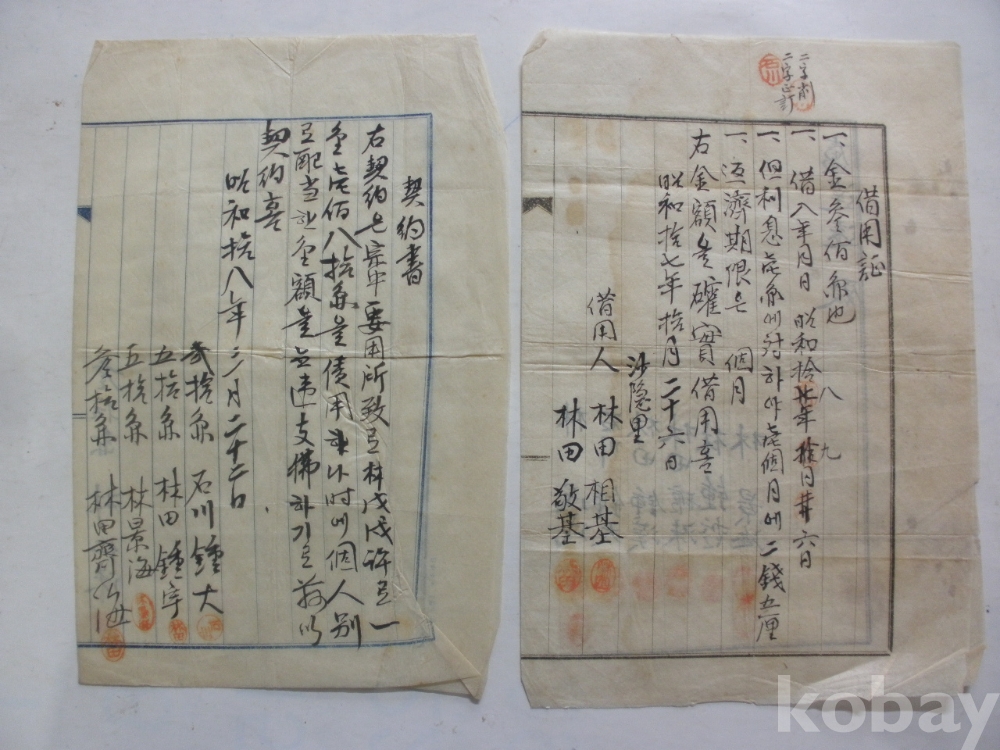 二字削
二字訂
借用証
一、金參佰円也
八 九
一、借入年月日 昭和拾七年拾月廿六日
一、但利息壱円에対하야壱個月에二錢五厘
一、返済期限은 個月
右金額을確實借用喜
昭和拾七年拾月二十六日
沙隠里
借用人 林田相基
林田敬基
契約書
右契約은宗中要用所致로林茂許로一
金壱佰八拾円을債用하나时에個人別
로配当한金額을無違支拂하기로茲以
契約喜
昭和拾八年三月二十二日
弐拾円 石川鍾大
五拾円 林田鍾宇
五拾円 林景海
參拾円 林田齊海
kobay